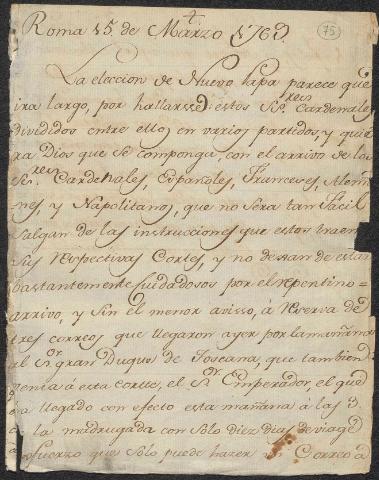 75
Roma 15 de Marzo 1769.
La eleccion de Nuevo Papa parece que
ira largo, por hallarse estos Sres. Cardenales,
divididos entre ellos en varios partidos, y quie
ra Dios que se componga, con el arrivo de los
Sres. Cardenales, Españoles, Franceses, Alema
nes, y Napolitanos, que no sera tan facil
salgan de las instrucciones que estos traen
sus respectivas Cortes, y no dexan de estar
bastantemente cuidadosos por el repentino
arrivo, y sin el menor avisso, á reserva de
tres correos que llegaron ayer por la mañana
al Sr. gran Duque de Toscana, que tambien
venia á esta corte, el Sr. Emperador el que
ha llegado con efecto esta mañana á las 3
de la madrugada con solo diez dias de viage
esfuerzo que solo puede hazer un Correo á